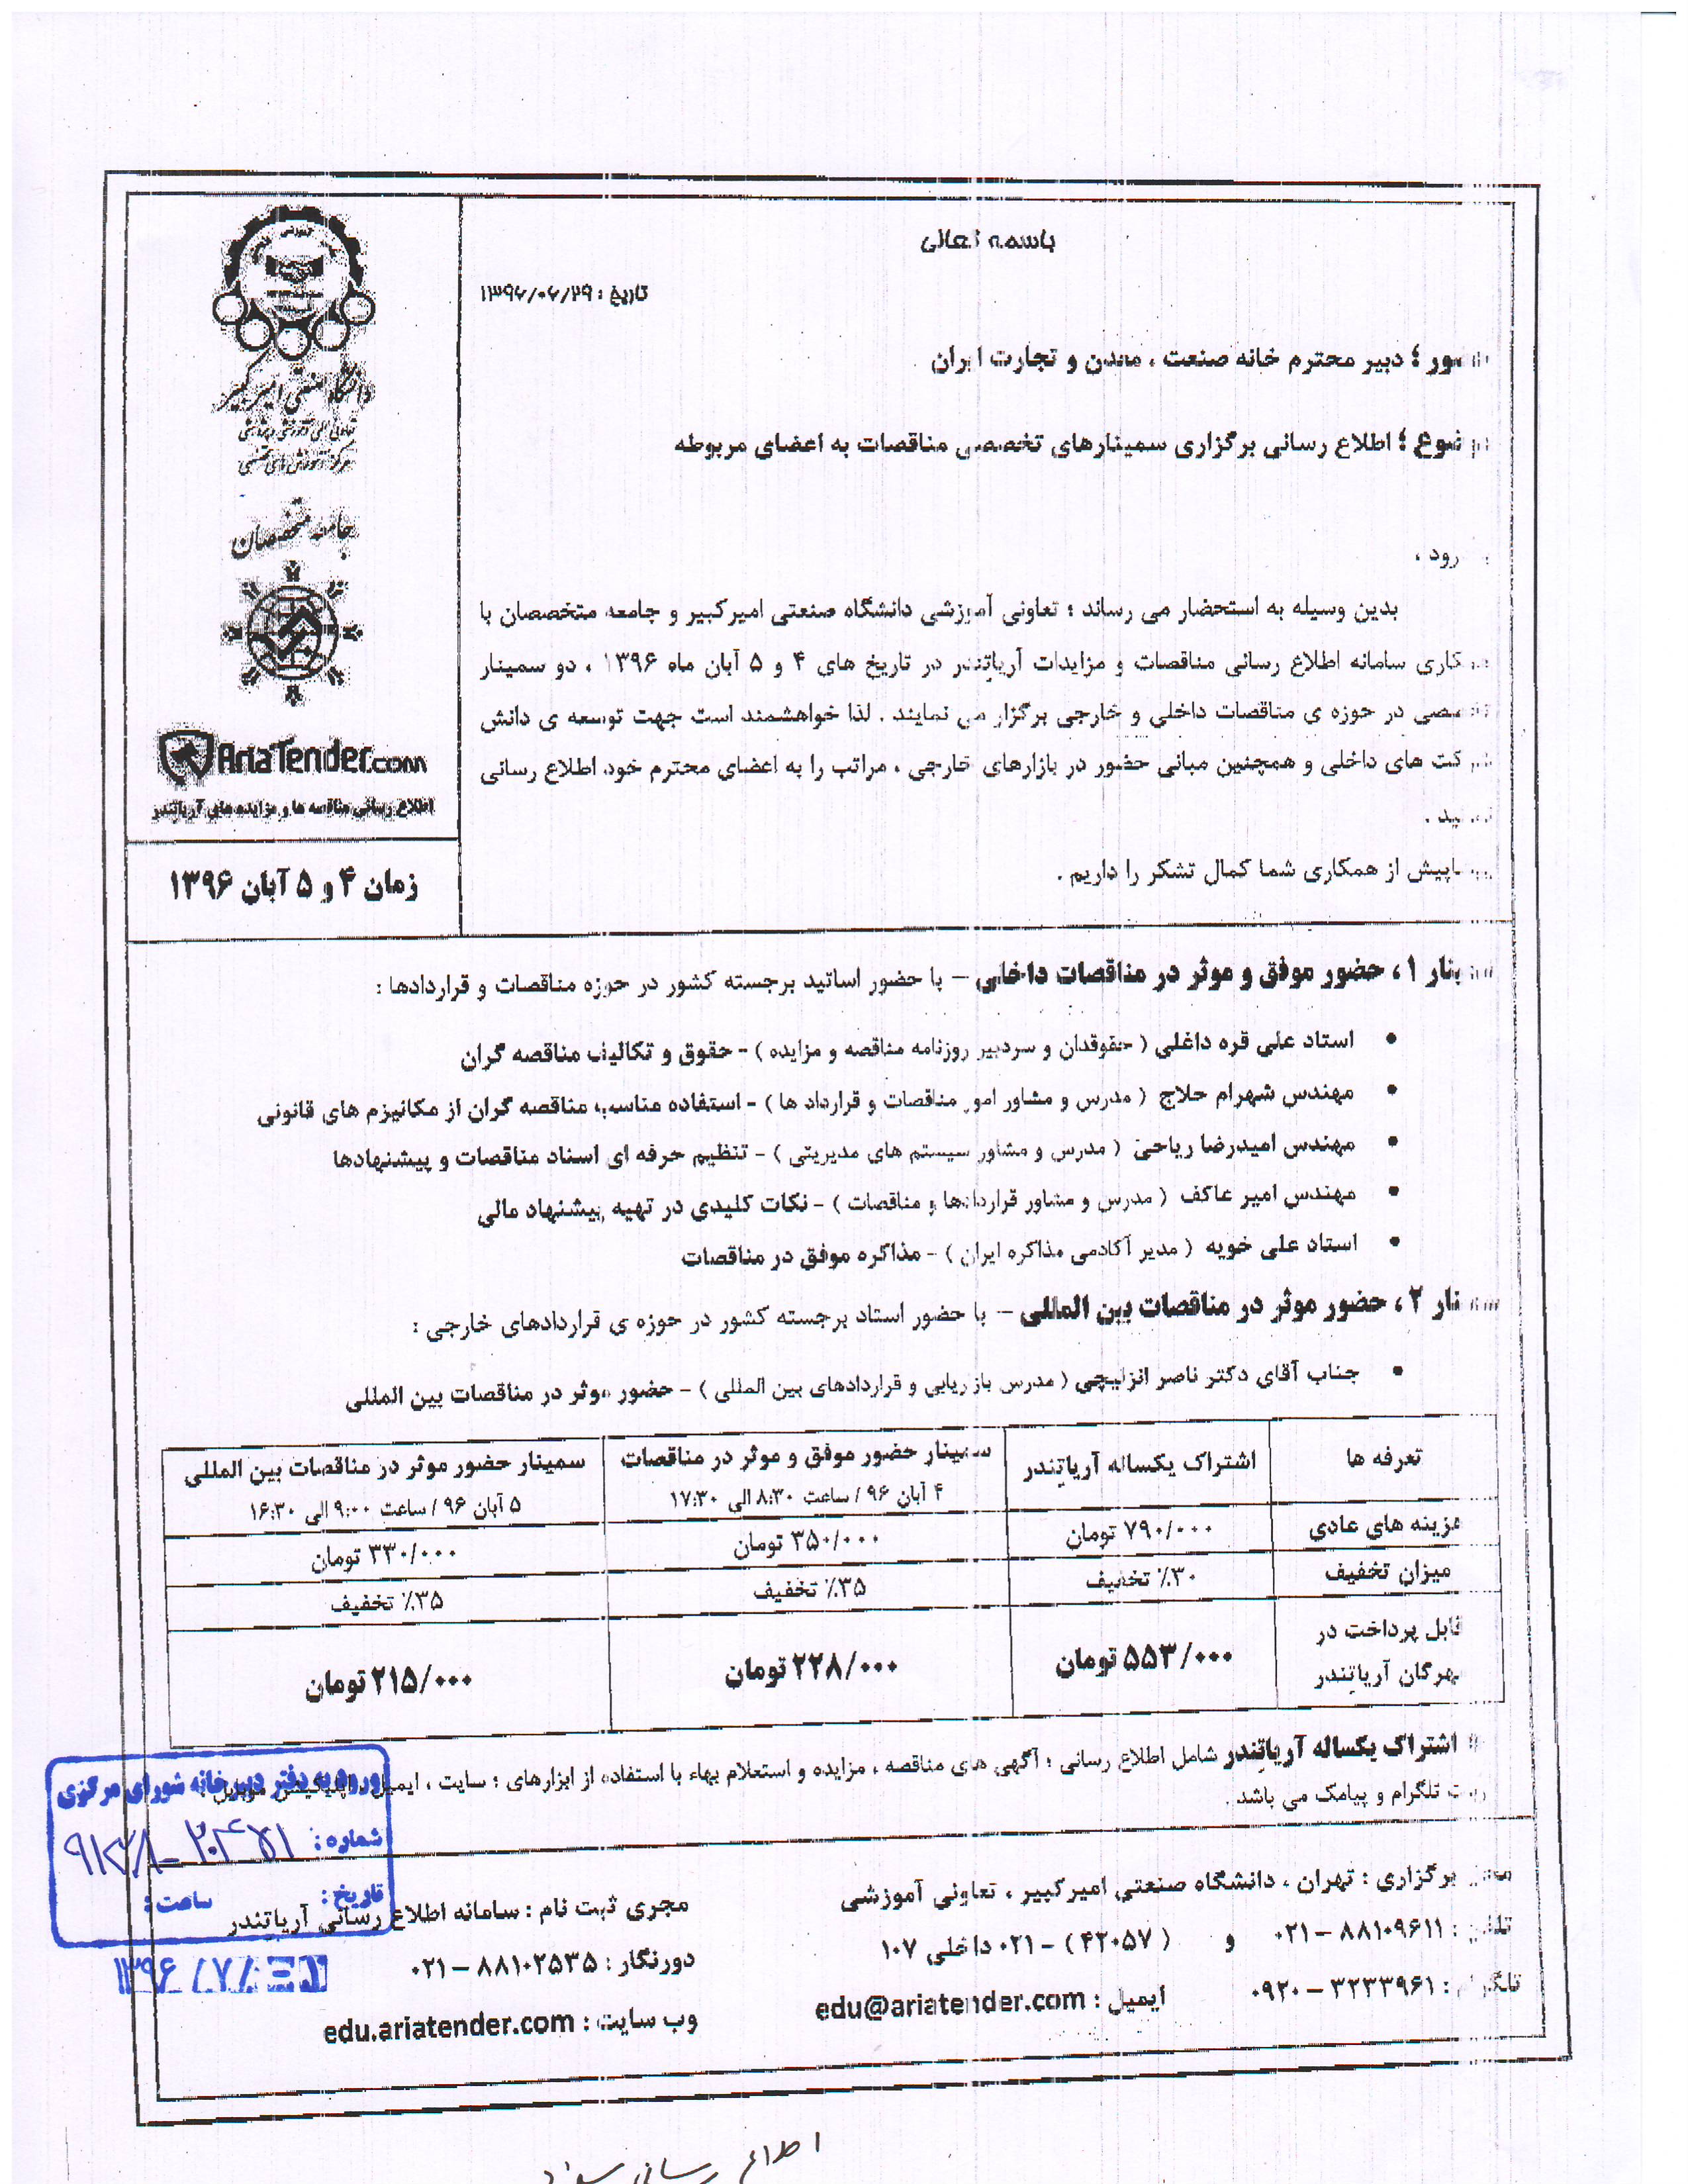 باسمه تعالی
تاریخ : ۱۳۹۶/۰۶/۲۹
دبیر محترم خانه صنعت ، معدن و تجارت ایران
اطلاع رسانی برگزاری سمینارهای تخصصی مناقصات به اعضای مربوطه
بدین وسیله به استحضار می رساند ؛ تعاونی آموزشی دانشگاه صنعتی امیرکبیر و جامعه متخصصان با
کاری سامانه اطلاع رسانی مناقصات و مزایدات آریاتندر در تاریخ های ۴ و ۵ آبان ماه ۱۳۹۶ ، دو سمینار
صصی در حوزه ی مناقصات داخلی و خارجی برگزار می نمایند . لذا خواهشمند است جهت توسعه ی دانش
کت های داخلی و همچنین مبانی حضور در بازارهای خارجی ، مراتب را به اعضای محترم خود اطلاع رسانی
ید .
اپیش از همکاری شما کمال تشکر را داریم .
دانشگاه صنعتی امیرکبیر
مرکز آموزش های تخصصی
جامعه متخصصان
AriaTender.com
اطلاع رسانی مناقصه ها و مزایده های آریاتندر
زمان ۴ و ۵ آبان ۱۳۹۶
ینار ۱ ، حضور موفق و موثر در مناقصات داخلی – با حضور اساتید برجسته کشور در حوزه مناقصات و قراردادها :
• استاد علی قره داغلی ( حقوقدان و سردبیر روزنامه مناقصه و مزایده ) - حقوق و تکالیف مناقصه گران
• مهندس شهرام حلاج ( مدرس و مشاور امور مناقصات و قرارداد ها ) - استفاده مناسب مناقصه گران از مکانیزم های قانونی
• مهندس امیدرضا ریاحی ( مدرس و مشاور سیستم های مدیریتی ) - تنظیم حرفه ای اسناد مناقصات و پیشنهادها
• مهندس امیر عاکف ( مدرس و مشاور قراردادها و مناقصات ) - نکات کلیدی در تهیه پیشنهاد مالی
• استاد علی خویه ( مدیر آکادمی مذاکره ایران ) - مذاکره موفق در مناقصات
نار ۲ ، حضور موثر در مناقصات بین المللی – با حضور استاد برجسته کشور در حوزه ی قراردادهای خارجی :
• جناب آقای دکتر ناصر انزلیچی ( مدرس بازاریابی و قراردادهای بین المللی ) - حضور موثر در مناقصات بین المللی
تعرفه ها اشتراک یکساله آریاتندر سمینار حضور موفق و موثر در مناقصات سمینار حضور موثر در مناقصات بین المللی
۴ آبان ۹۶ / ساعت ۸:۳۰ الی ۱۷:۳۰ ۵ آبان ۹۶ / ساعت ۹:۰۰ الی ۱۶:۳۰
هزینه های عادی ۷۹۰/۰۰۰ تومان ۳۵۰/۰۰۰ تومان ۳۳۰/۰۰۰ تومان
میزان تخفیف ۳۰٪ تخفیف ۳۵٪ تخفیف ۳۵٪ تخفیف
قابل پرداخت در
مهرگان آریاتندر ۵۵۳/۰۰۰ تومان ۲۲۸/۰۰۰ تومان ۲۱۵/۰۰۰ تومان
اشتراک یکساله آریاتندر شامل اطلاع رسانی ؛ آگهی های مناقصه ، مزایده و استعلام بهاء با استفاده از ابزارهای ؛ سایت ، ایمیل ، اپلیکیشن موبایل ،
ت تلگرام و پیامک می باشد .
ورود به دفتر دبیرخانه شورای مرکزی
شماره :
تاریخ : ساعت :
محل برگزاری : تهران ، دانشگاه صنعتی امیرکبیر ، تعاونی آموزشی
مجری ثبت نام : سامانه اطلاع رسانی آریاتندر
تلفن : ۸۸۱۰۹۶۱۱ – ۰۲۱ و ( ۴۲۰۵۷ ) – ۰۲۱ داخلی ۱۰۷
دورنگار : ۸۸۱۰۲۵۳۵ – ۰۲۱
تلگرام : ۳۲۳۳۹۶۱ – ۰۹۲۰ ایمیل : edu@ariatender.com
وب سایت : edu.ariatender.com
اطلاع رسانی